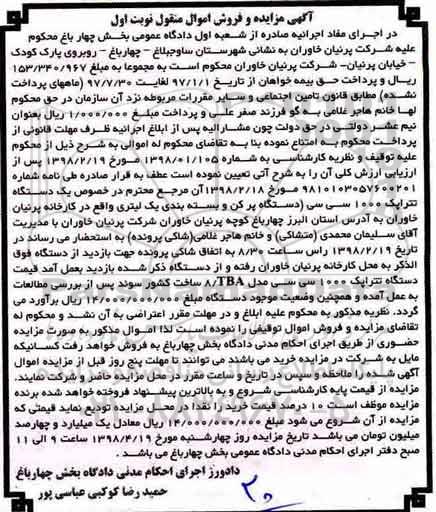 آگهی مزایده و فروش اموال منقول نوبت اول
در اجرای مفاد اجرائیه صادره از شعبه اول دادگاه عمومی بخش چهار باغ محکوم
علیه شرکت پرنیان خاوران به نشانی شهرستان ساوجبلاغ - چهارباغ - روبروی پارک کودک
- خیابان پرنیان- شرکت پرنیان خاوران محکوم است به مجموعا به مبلغ ۱۵۳/۳۴۰/۹۶۷
ریال و پرداخت حق بیمه خواهان از تاریخ ۹۷/۱/۱ لغایت ۹۷/۷/۳۰ (ماههای پرداخت
نشده) مطابق قانون تامین اجتماعی و سایر مقررات مربوطه نزد آن سازمان در حق محکوم
لها خانم هاجر غلامی به گو فرزند صفر علی و پرداخت مبلغ ۱/۰۰۰/۰۰۰ ریال بعنوان
نیم عشر دولتی در حق دولت چون مشارالیه پس از ابلاغ اجرائیه ظرف مهلت قانونی از
پرداخت محکوم به امتناع نموده بنا به تقاضای محکوم له اموالی به شرح ذیل از محکوم
علیه توقیف و نظریه کارشناسی به شماره ۱۳۹۸/۰۱/۱۰۵ مورخ ۱۳۹۸/۲/۱۹ پس از
ارزیابی ارزش کلی آن را به شرح آتی تعیین نموده است عطف به قرار صادره طی نامه شماره
۹۸۱۰۱۰۳۰۵۷۶۰۰۲۰۱ مورخ ۱۳۹۸/۲/۱۸ آن مرجع محترم در خصوص یک دستگاه
تتراپک ۱۰۰۰ سی سی (دستگاه پر کن و بسته بندی یک لیتری واقع در کارخانه پرنیان
خاوران به آدرس استان البرز چهارباغ کوچه پرنیان خاوران شرکت پرنیان خاوران با مدیریت
آقای سلیمان محمدی (متشاکی) و خانم هاجر غلامی(شاکی پرونده) به استحضار می رساند در
تاریخ ۱۳۹۸/۲/۱۹ راس ساعت ۸/۳۰ به اتفاق شاکی پرونده جهت بازدید از دستگاه فوق
الذکر به محل کارخانه پرنیان خاوران رفته و از دستگاه ذکر شده بازدید بعمل آمد قیمت
دستگاه تتراپک ۱۰۰۰ سی سی مدل 8/TBA ساخت کشور سوئد پس از بررسی مطالعات
به عمل آمده و همچنین وضعیت موجود دستگاه مبلغ ۱۴/۰۰۰/۰۰۰/۰۰۰ ریال برآورد می
گردد. نظریه مذکور به محکوم علیه ابلاغ و در مهلت مقرر اعتراضی به آن نشد و محکوم له
تقاضای مزایده و فروش اموال توقیفی را نموده است لذا اموال مذکور به صورت مزایده
حضوری از طریق اجرای احکام مدنی دادگاه بخش چهارباغ به فروش خواهد رفت کسانیکه
مایل به شرکت در مزایده خرید می باشند می توانند تا مهلت پنج روز قبل از مزایده اموال
آگهی شده را ملاحظه و سپس در تاریخ و ساعت مقرر در محل مزایده حاضر و شرکت نمایند.
مزایده از قیمت پایه کارشناسی شروع و به بالاترین پیشنهاد فروخته خواهد شد برنده
مزایده موظف است ۱۰ درصد قیمت خرید را نقدا در محل مزایده تودیع نماید قیمتی که
مزایده از آن شروع می شود مبلغ ۱۴/۰۰۰/۰۰۰/۰۰۰ ریال معادل یک میلیارد و چهارصد
میلیون تومان می باشد تاریخ مزایده روز چهارشنبه مورخ ۱۳۹۸/۴/۱۹ ساعت ۹ الی ۱۱
صبح دفتر اجرای احکام مدنی دادگاه عمومی بخش چهارباغ می باشد .
دادورز اجرای احکام مدنی دادگاه بخش چهارباغ
حمید رضا کوکبی عباسی پور